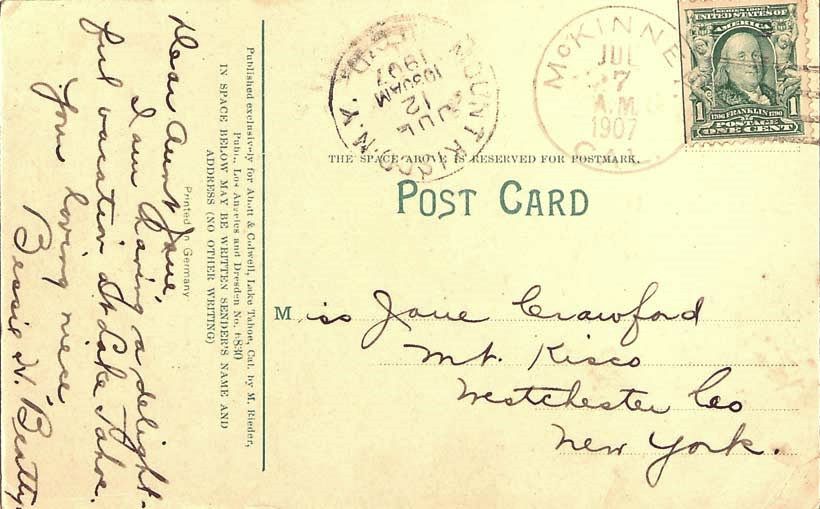 Dear Aunt Jane,
I am having a delight-
ful vacation at Lake Tahoe.
Your loving niece
Bessie N. Beatty.
Printed in Germany
Published exclusively for Abott & Colwell, Lake Tahoe, Cal. by M. Rieder,
Publ., Los Angeles and Dresden No.
IN SPACE BELOW MAY BE WRITTEN SENDER'S NAME AND
ADDRESS (NO OTHER WRITING)
MOUNT KISCO N.Y.
JUL
12
1030AM
1907
McKINNEY
JUL
7
A.M.
1907
CAL.
SERIES 1902
UNITED STATES OF
AMERICA
1706 FRANKLIN 1790
1 POSTAGE 1
ONE CENT
THE SPACE ABOVE IS RESERVED FOR POSTMARK.
POST CARD
Miss Jane Crawford
Mt. Kisco
Westchester Co
New York.